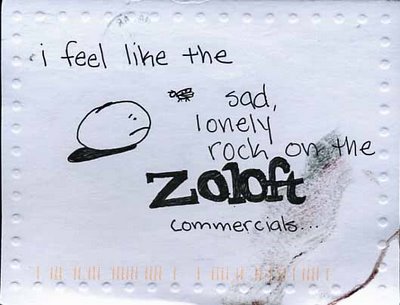 i feel like the
sad,
lonely
rock on the
Zoloft
commercials...